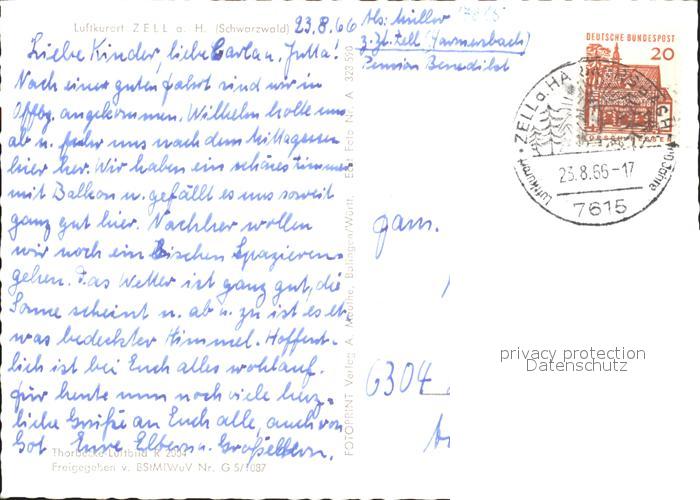 Luftkurort ZELL a. H. (Schwarzwald) 23.8.66
Liebe Kinder, liebe Carla u. Jutta!
Nach einer guten Fahrt sind wir in
Offbg. angekommen. Wilhelm holte uns
ab u. fuhr uns nach dem Mittagessen
hier her. Wir haben ein schönes Zimmer
mit Balkon u. gefällt es uns soweit
ganz gut hier. Nachher wollen
wir noch ein bischen spazieren-
gehen. Das Wetter ist ganz gut, die
Sonne scheint u. ab u. zu ist es et-
was bedeckter Himmel. Hoffent-
lich ist bei Euch alles wohlauf.
Für heute nun noch viele herz-
liche Grüße an Euch alle, auch von
Eure Eltern u. Großeltern.
Thorbecke-Luftbild R 2004
Freigegeben v. BStMfWuV Nr. G 5/1087
FOTOPRINT Verlag A.
Abs: Müller
z. Zt. Zell (Harmersbach)
Pension Benedikt
DEUTSCHE BUNDESPOST
20
Luftkurort · ZELL a. HA
23.8.66-17
7615
Fam.
6304
privacy protection
Datenschutz